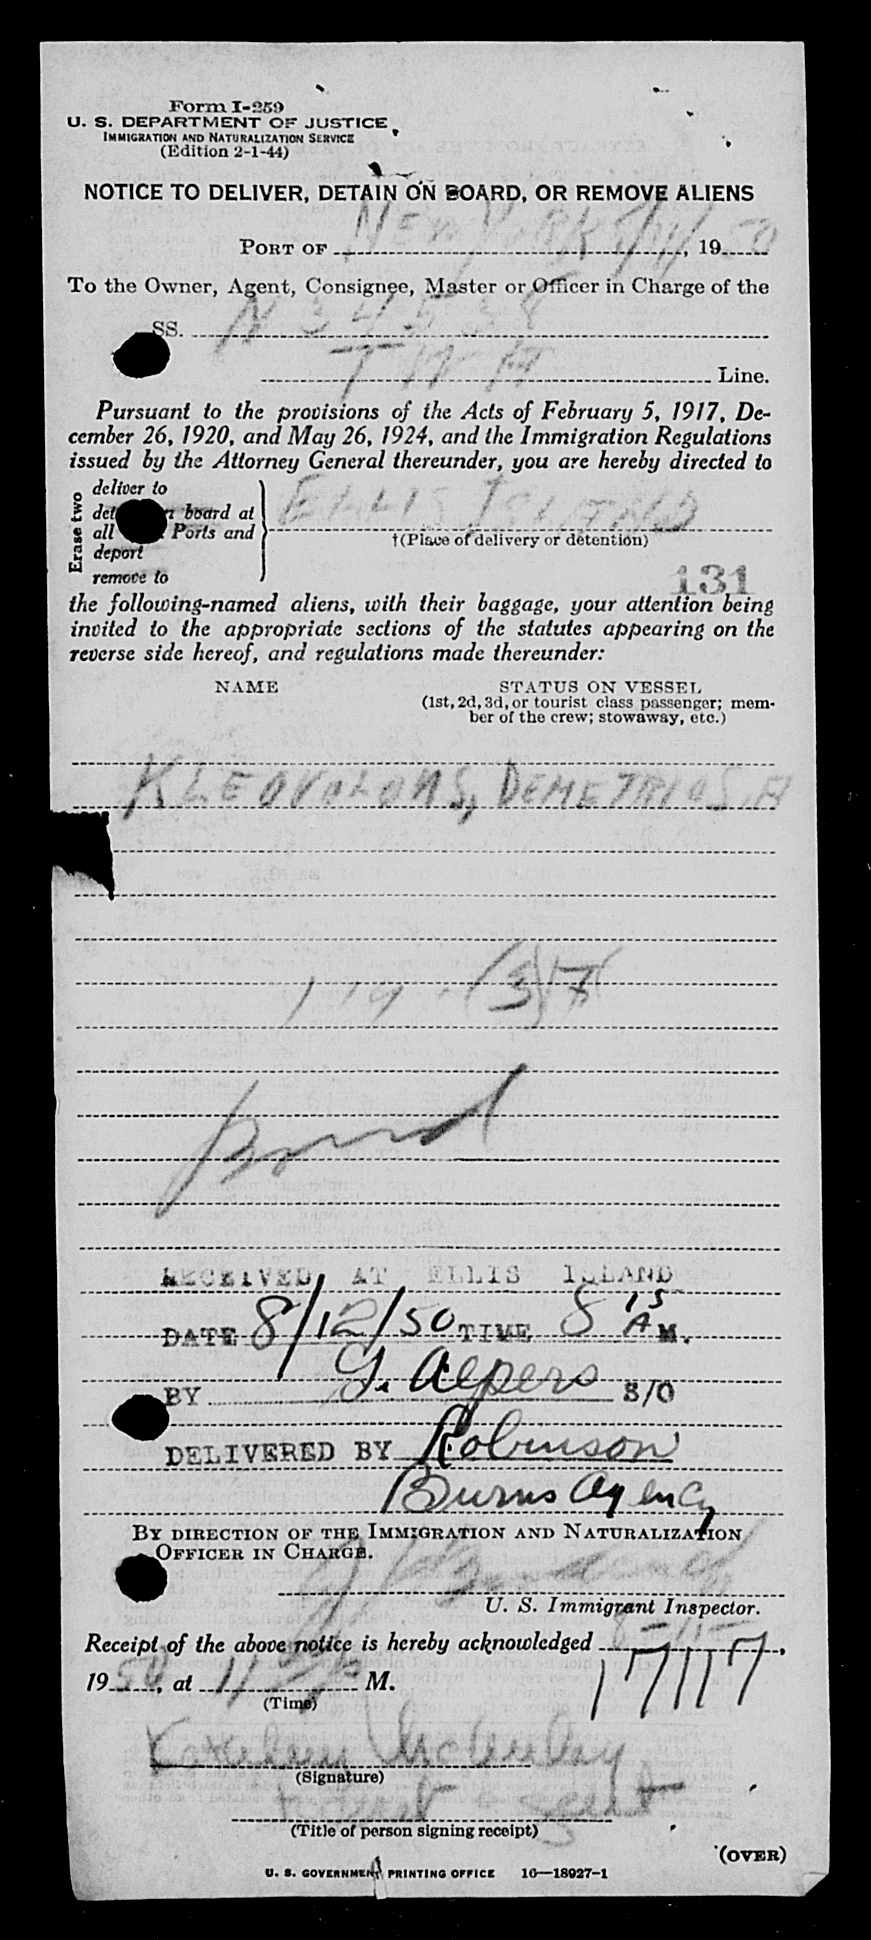 Form I-259
U. S. DEPARTMENT OF JUSTICE
IMMIGRATION AND NATURALIZATION SERVICE
(Edition 2-1-44)
NOTICE TO DELIVER, DETAIN ON BOARD, OR REMOVE ALIENS
PORT OF NEW YORK 8/11/, 1950
To the Owner, Agent, Consignee, Master or Officer in Charge of the
SS. N 34538
Line.
Pursuant to the provisions of the Acts of February 5, 1917, De-
cember 26, 1920, and May 26, 1924, and the Immigration Regulations
issued by the Attorney General thereunder, you are hereby directed to
Erase two
deliver to
board at
all Ports and
deport
remove to
ELLIS ISLAND
†(Place of delivery or detention)
131
the following-named aliens, with their baggage, your attention being
invited to the appropriate sections of the statutes appearing on the
reverse side hereof, and regulations made thereunder:
NAME STATUS ON VESSEL
(1st, 2d, 3d, or tourist class passenger; mem-
ber of the crew; stowaway, etc.)
DEMETRIOS,
RECEIVED AT ELLIS ISLAND
DATE 8/12/50 TIME 8 15 A M.
BY G. Alpers S/O
DELIVERED BY Robinson
Burns Agency
BY DIRECTION OF THE IMMIGRATION AND NATURALIZATION
OFFICER IN CHARGE.
U. S. Immigrant Inspector.
Receipt of the above notice is hereby acknowledged
1950, at M.
17117
(Time)
(Signature)
(Title of person signing receipt)
(OVER)
U. S. GOVERNMENT PRINTING OFFICE 16—18927-1